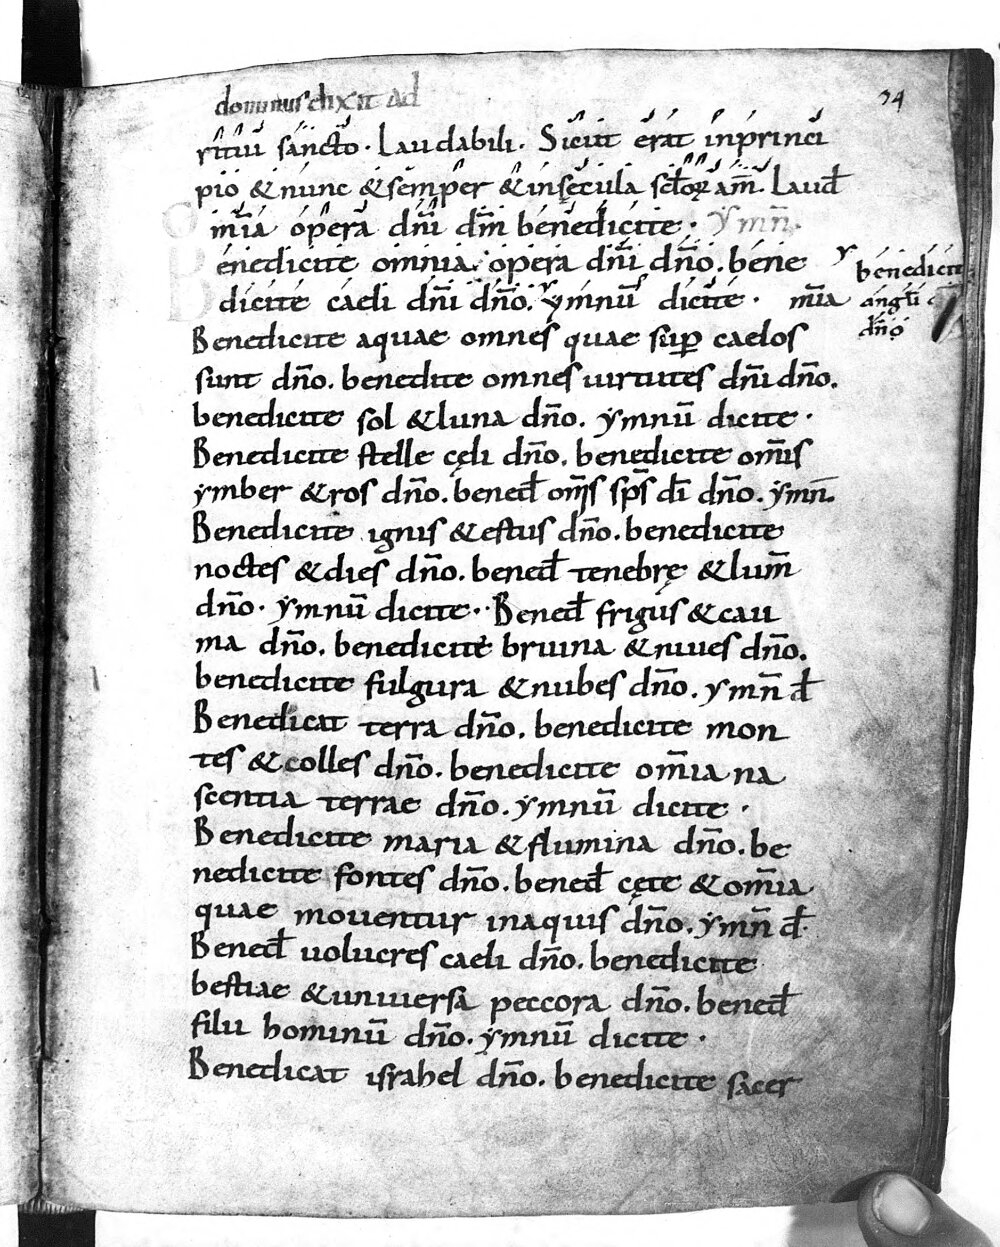 dominus dixit ad
74
ritiū sāncto. Laudabili. Sicut erat inprinci
pio & nunc & semper & insęcula sc̄lorꝝ am̄. Laud̄
om̄ia opera dn̄i dn̄m benedicite. ymn̄.
Benedicite omnia opera dn̄i dn̄o. bene
dicite caeli dn̄i dn̄o. ymnū dicite.
benedicite
angeli
dn̄o
Benedicite aquae omnes quae sup̄ caelos
sunt dn̄o. benedite omnes uirtutes dn̄i dn̄o.
benedicite sol & luna dn̄o. ymnū dicite.
Benedicite stelle cęli dn̄o. benedicite om̄is
ymber & ros dn̄o. bened̄ om̄s sp̄s dī dn̄o. ymn̄.
Benedicite ignis & estus dn̄o. benedicite
noctes & dies dn̄o. bened̄ tenebrę & lum̄
dn̄o. ymnū dicite. Bened̄ frigus & cau
ma dn̄o. benedicite bruina & niues dn̄o.
benedicite fulgura & nubes dn̄o. ymn̄ d̄
Benedicat terra dn̄o. benedicite mon
tes & colles dn̄o. benedicite om̄ia na
scentia terrae dn̄o. ymnū dicite.
Benedicite maria & flumina dn̄o. be
nedicite fontes dn̄o. bened̄ cęte & om̄ia
quae mouentur inaquis dn̄o. ymn̄ d̄.
Bened̄ uolucres caeli dn̄o. benedicite
bestiae & uniuersa peccora dn̄o. bened̄
filii hominū dn̄o. ymnū dicite.
Benedicat israhel dn̄o. benedicite sacer